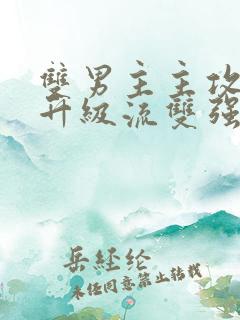 雙男主主攻
升級流雙強
岳經纶
未经同意禁止转载